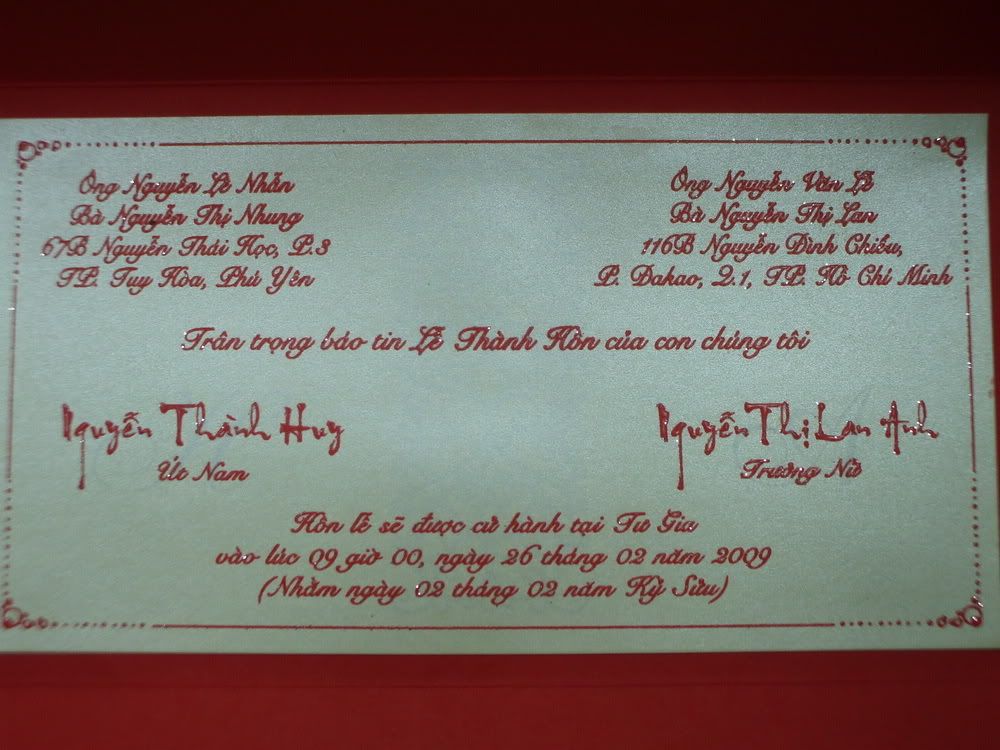 Ông Nguyễn Lê Nhẫn
Bà Nguyễn Thị Nhung
67B Nguyễn Thái Học, P.3
TP. Tuy Hòa, Phú Yên
Ông Nguyễn Văn Lễ
Bà Nguyễn Thị Lan
116B Nguyễn Đình Chiểu,
P. Đakao, Q.1, TP. Hồ Chí Minh
Trân trọng báo tin Lễ Thành Hôn của con chúng tôi
Nguyễn Thành Huy
Út Nam
Nguyễn Thị Lan Anh
Trưởng Nữ
Hôn lễ sẽ được cử hành tại Tư Gia
vào lúc 09 giờ 00, ngày 26 tháng 02 năm 2009
(Nhằm ngày 02 tháng 02 năm Kỷ Sửu)